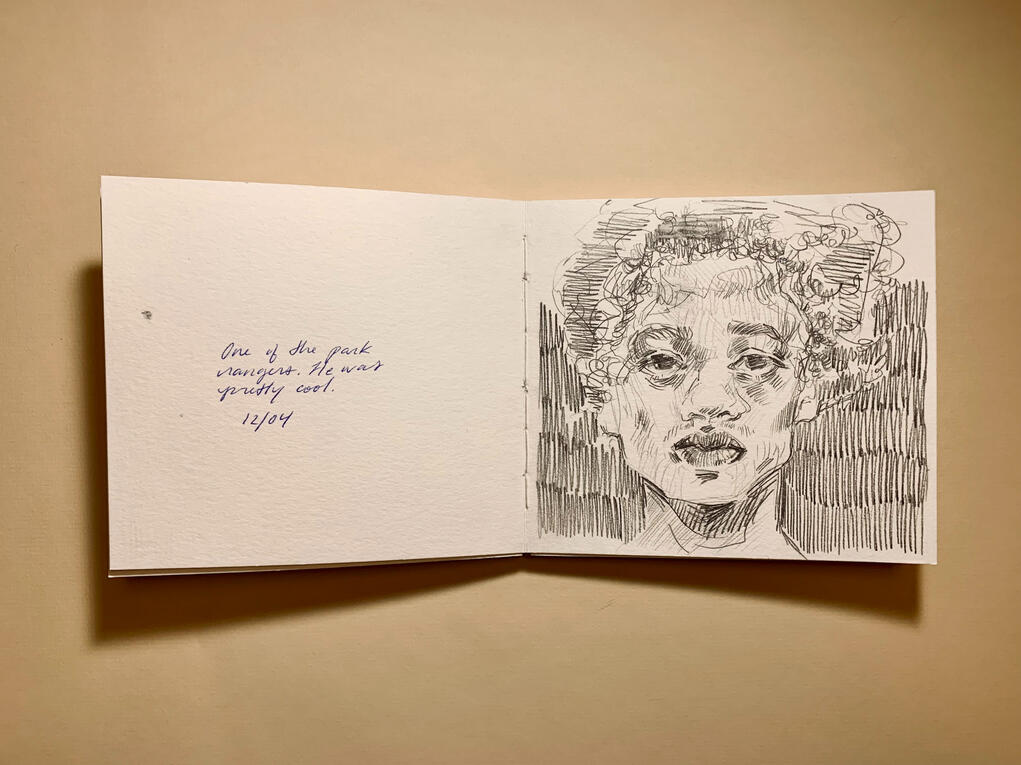 One of the park
rangers. He was
pretty cool.
12/04